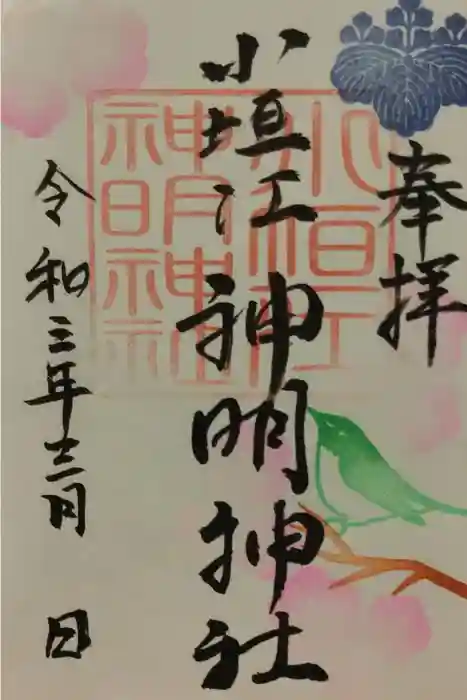 奉拝
小垣江神明神社
小垣江
神明神社
令和三年十二月 日